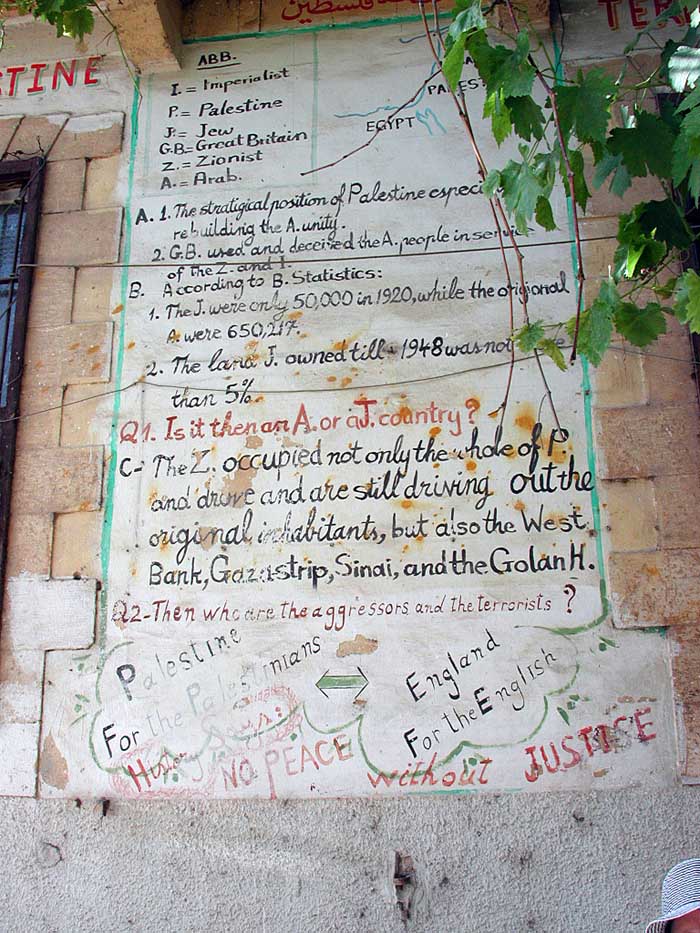 فلسطين
TINE
ABB.
I. = Imperialist
P. = Palestine
J. = Jew
G.B. = Great Britain
Z. = Zionist
A. = Arab.
EGYPT
A. 1. The stratigical position of Palestine
rebuilding the A. unity.
2. G.B. used and deceived the A. people in service
of the Z. and I.
B. According to B. Statistics:
1. The J. were only 50,000 in 1920, while the original
A. were 650,217.
2. The land J. owned till 1948 was not
than 5%
Q1. Is it then an A. or a J. country?
C- The Z. occupied not only the whole of P.
and drove and are still driving out the
original inhabitants, but also the West
Bank, Gaza strip, Sinai, and the Golan H.
Q2- Then who are the aggressors and the terrorists ?
Palestine
For the Palestinians
England
For the English
History Says:
NO PEACE without JUSTICE